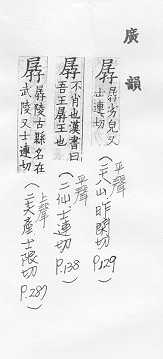 廣韻
孱 孱劣皃又
士連切
(二十八山昨閑切
平聲
P.129
孱 不肖也漢書曰
吾王孱王也
(二仙士連切)
平聲
P.138
孱 孱陵古縣名在
武陵又士連切
(二十產士限切)
上聲
P.287